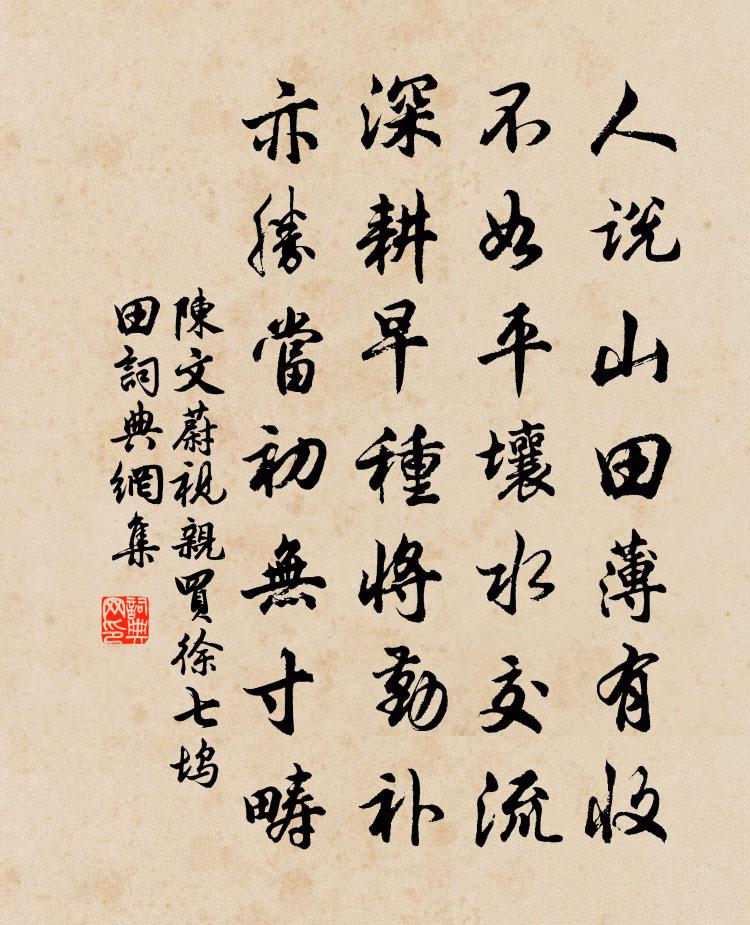 人說山田薄有收
不如平壤水交流
深耕早種將勤补
亦勝當初無寸疇
陳文蔚視親買徐七塢
田詞典網集
詞典
网印